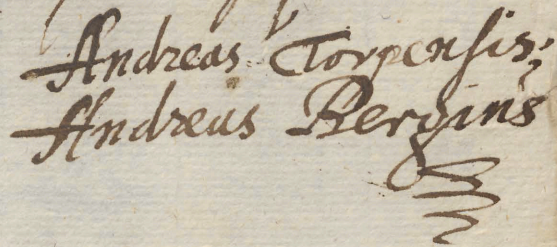 Andreas Torpensis;
Andreas Bergius